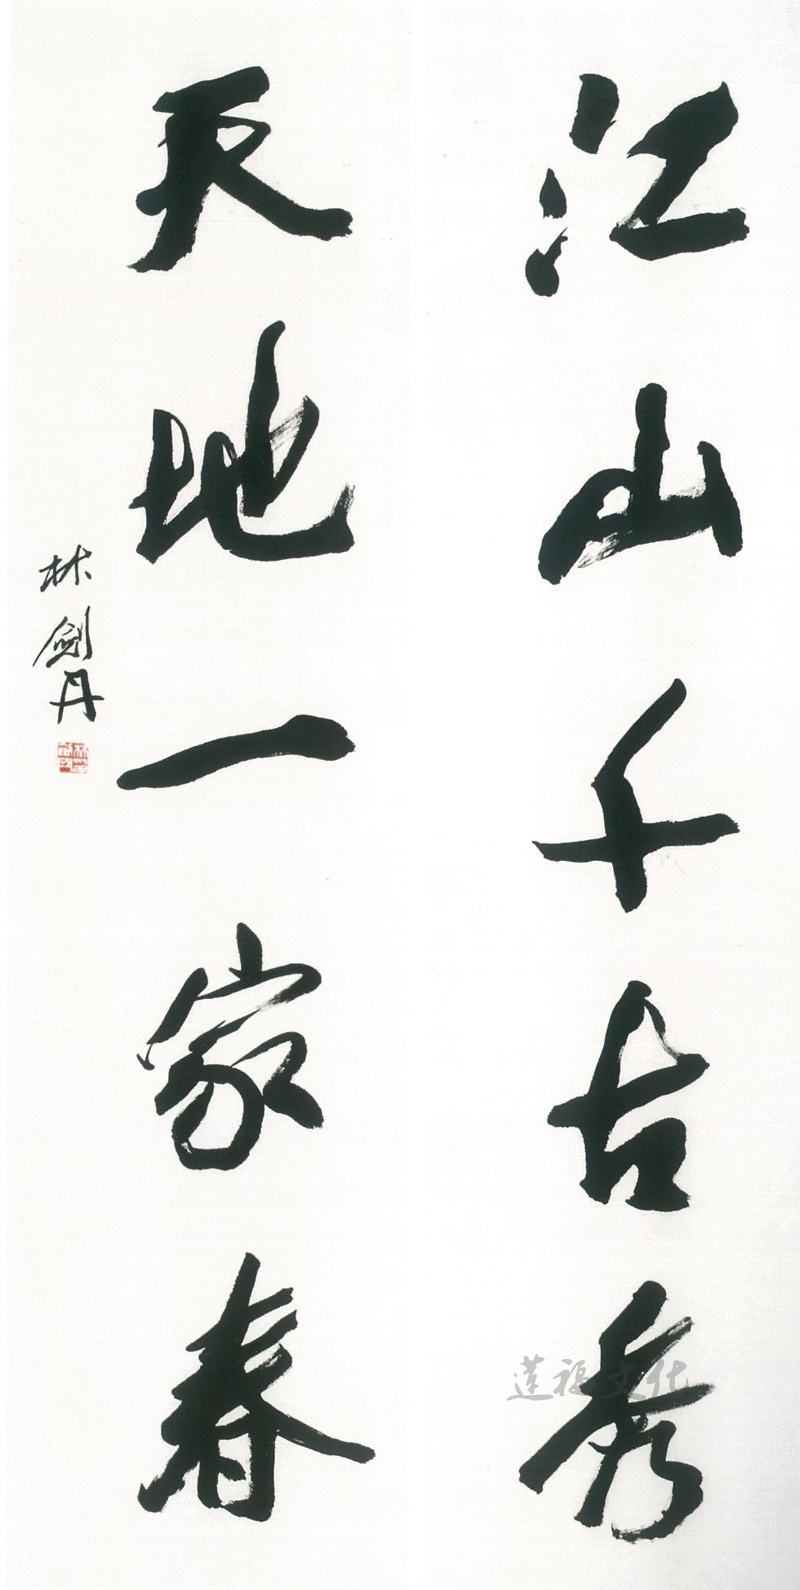 江山千古秀
天地一家春
林剑丹
莲福文化